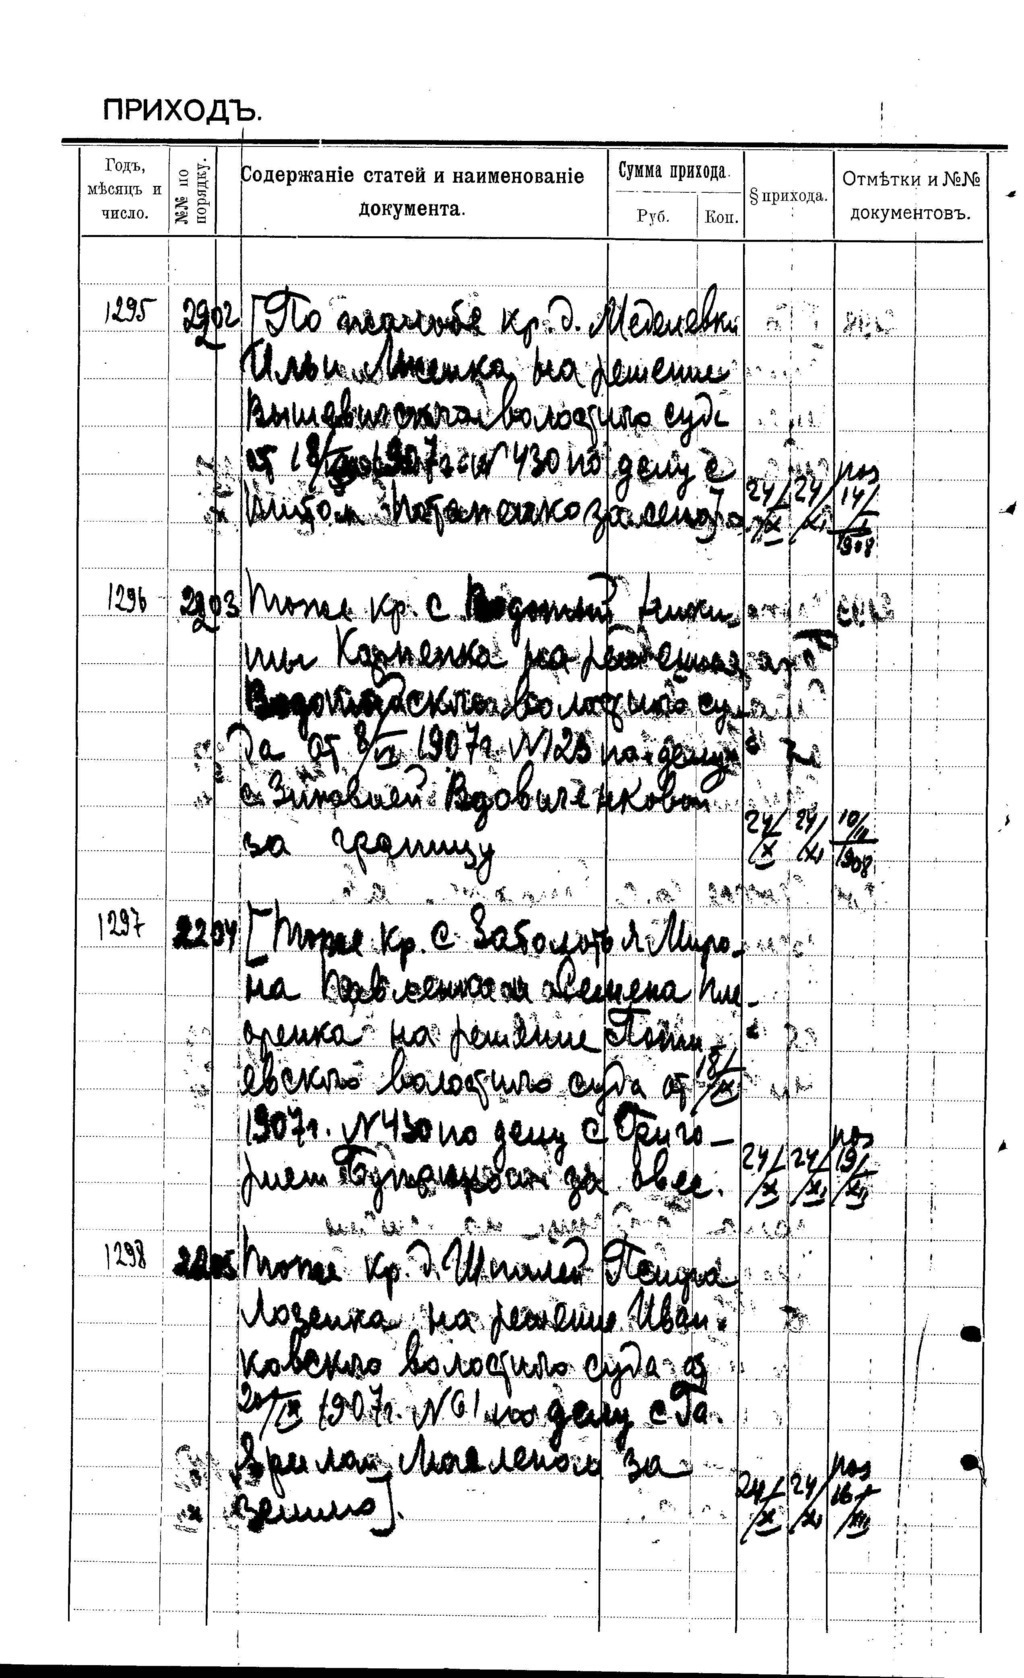 ПРИХОДЪ.
Годъ, мѣсяцъ и число.
№№ по порядку.
Содержаніе статей и наименованіе документа.
Сумма прихода.
Руб. Коп.
§ прихода.
Отмѣтки и №№ документовъ.
1295 2202 [По жалобе кр. д. Меделевки
Ильи на решение
волостнго суда
от 18/IX 1907 г. N 430 по делу с
Титом за сено].
24/X 24/XI 14/I 1908
1296 2203 Тоже кр. с.
Карпенка на решение
волостнго су
да от 8/IX 1907 г. N 123 по делу
с Зиновией Вдовиченковой
за границу
24/X 24/XI 10/II 1908
1297 2204 [Тоже кр. с. Заболотья Миро-
на Павленка и Семена
на решение Поти
евскго волостнго суда от 18/IX
1907 г. N 430 по делу с Григо-
рием за овес.
24/X 24/XI 19/XII
1298 2205 Тоже кр. д. Петра
Лозенка на решение Иван-
ковскго волостнго суда от
20/IX 1907 г. N 61 по делу с Га-
врилом за
землю].
24/X 24/XI 16/XII